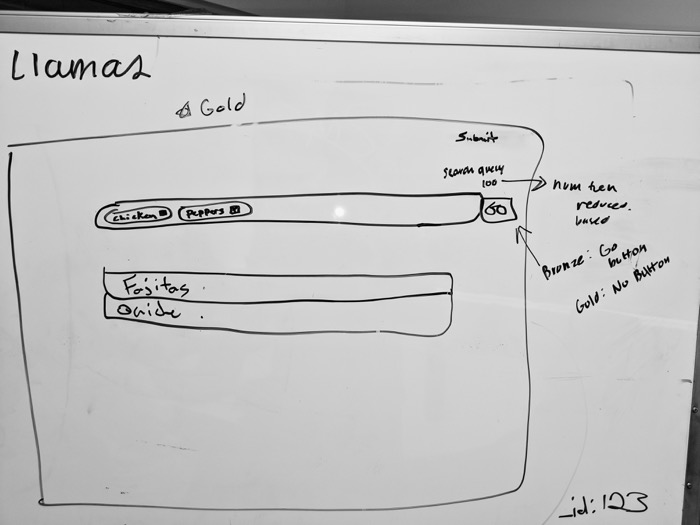 Llamas
Gold
Submit
search query
100
num then
reduced.
based
chicken
Peppers
GO
Bronze: Go
button
Gold: No Button
Fajitas
Quiche
_id:123